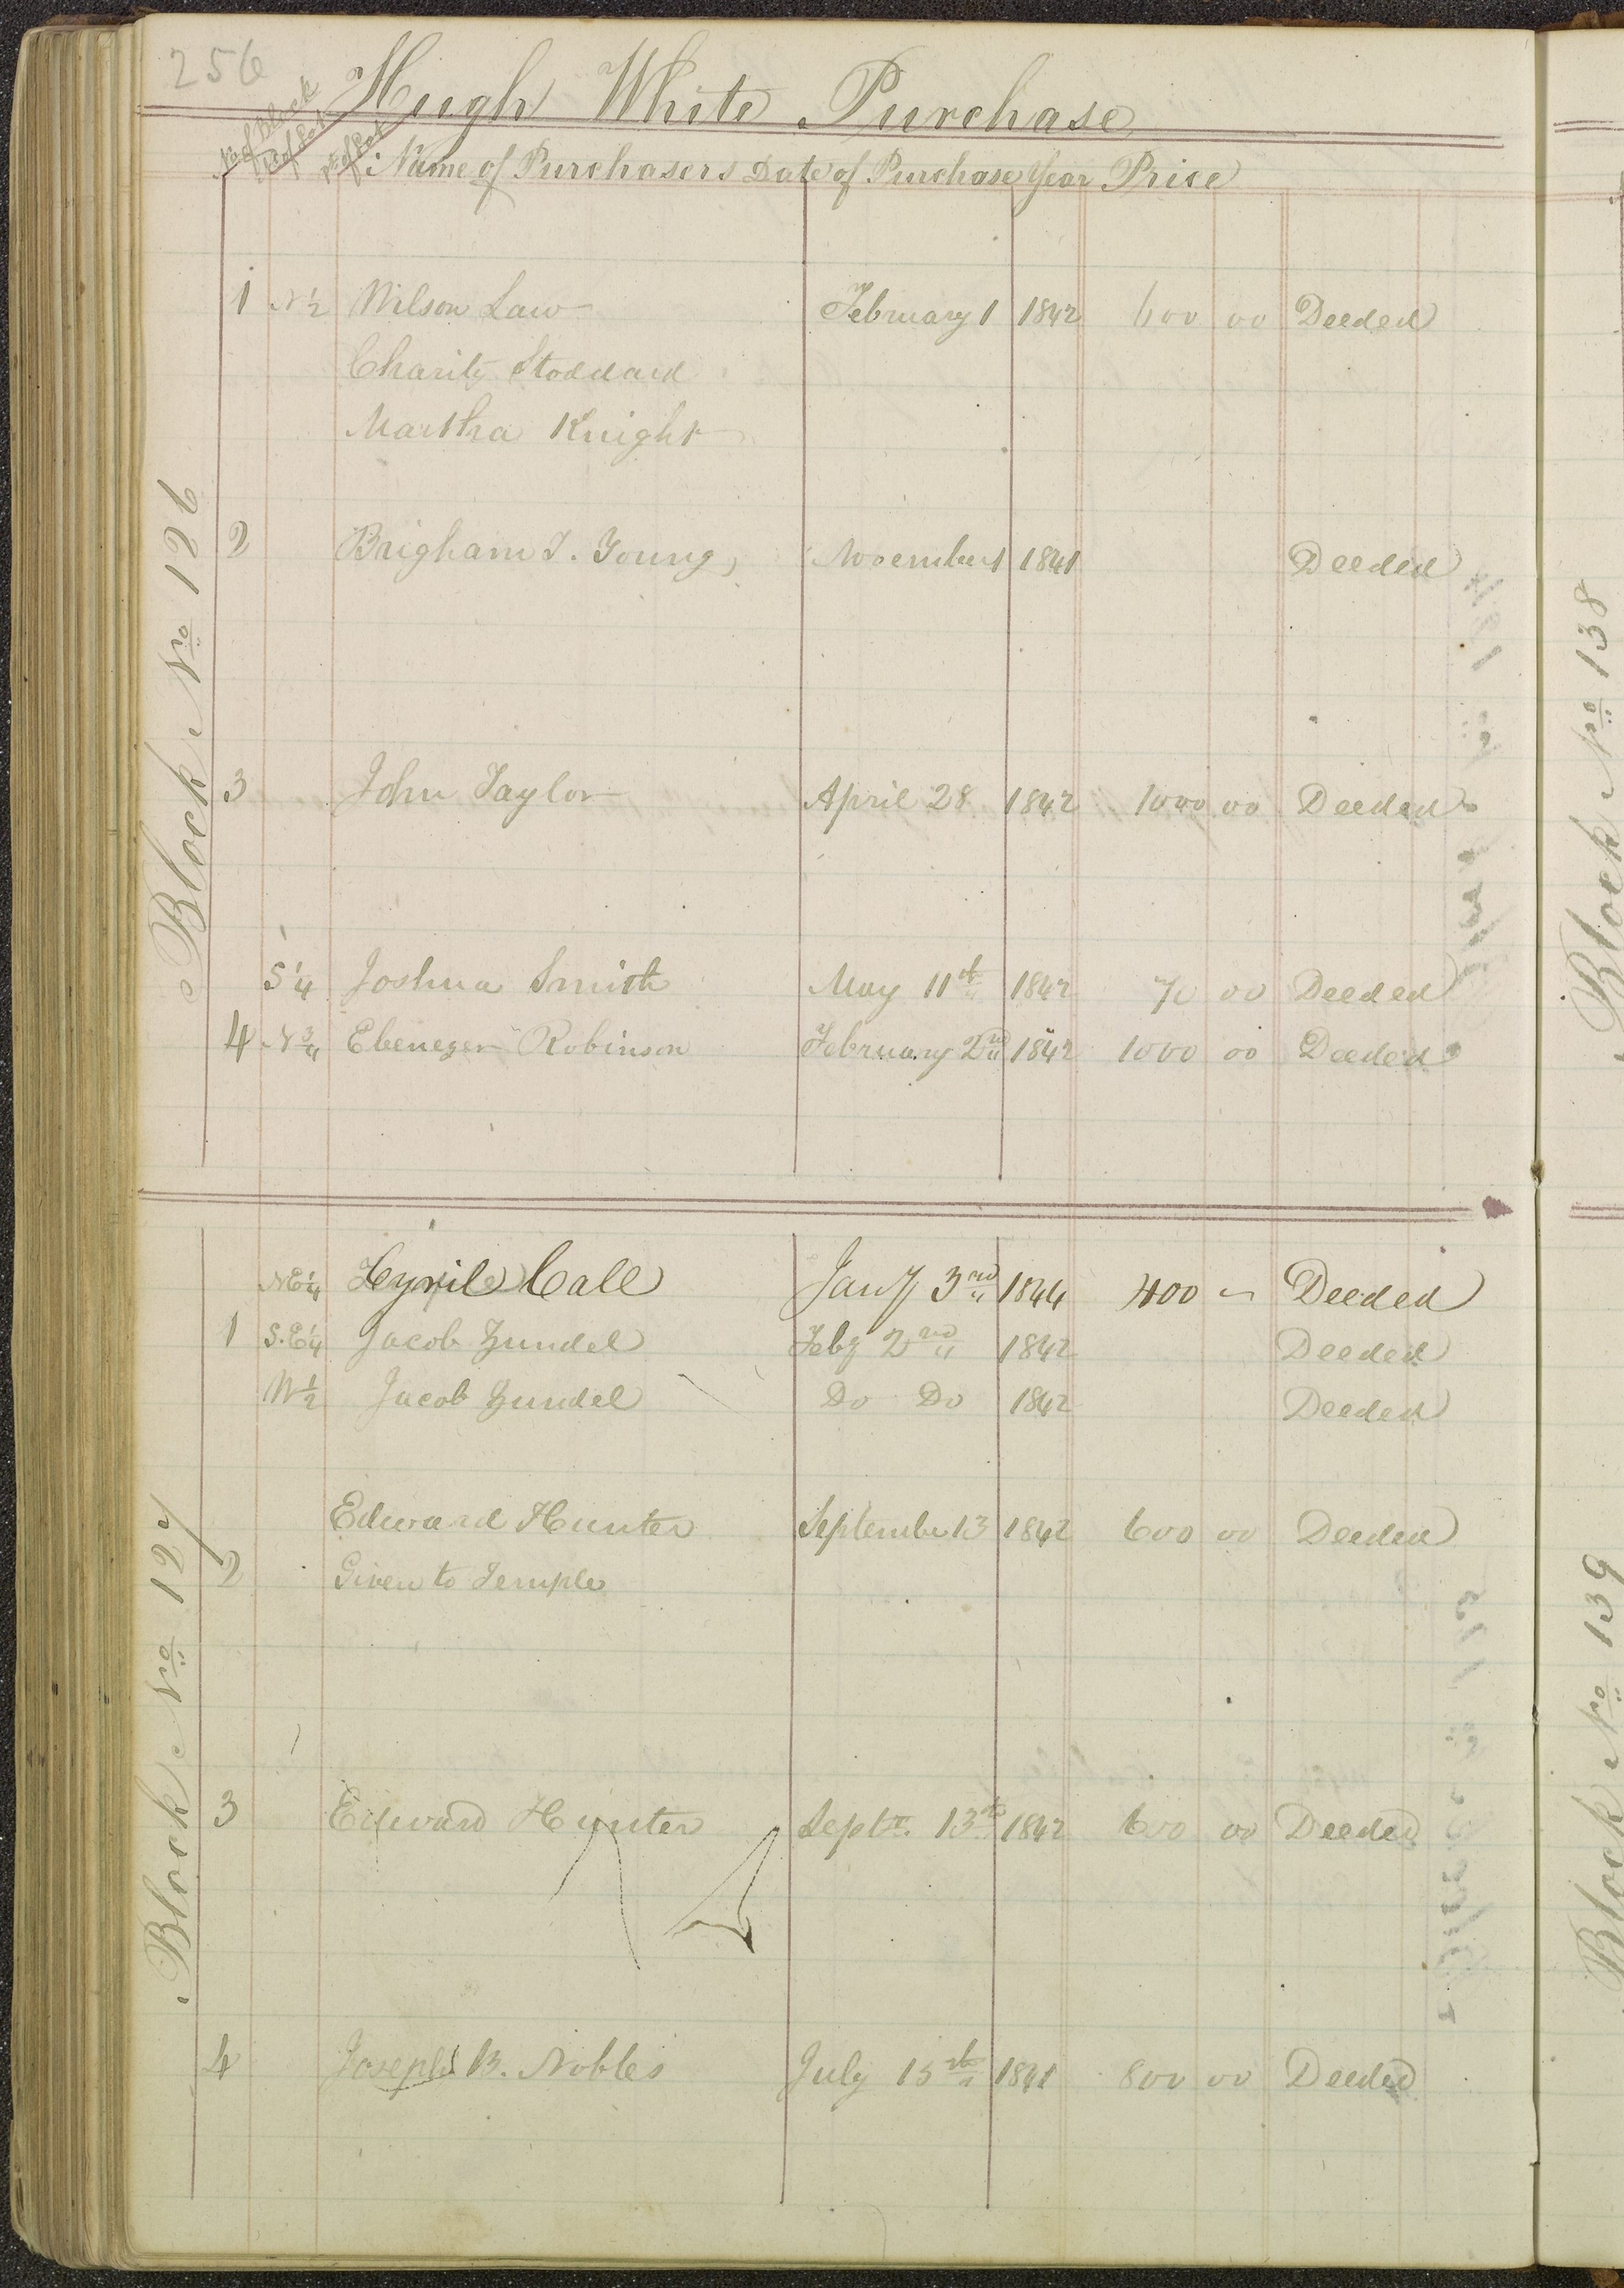 256
Hugh White Purchase
No of Block No of Lot Pt of Lot Name of Purchasers Date of Purchase Year Price
Block No 126
1 N 1/2 Wilson Law February 1 1842 600 00 Deeded
Charity Stoddard
Martha Knight
2 Brigham J. Young, November 1 1841 Deeded
3 John Taylor April 28 1842 1000 00 Deeded
S 1/4 Joshua Smith May 11th 1842 70 00 Deeded
4 N 3/4 Ebenezer Robinson February 2nd 1842 1000 00 Deeded
Block No 127
NE 1/4 Cyril Call Jany 3rd 1844 400 Deeded
1 S.E 1/4 Jacob Zundel Feby 2nd 1842 Deeded
W 1/2 Jacob Zundel Do Do 1842 Deeded
Edward Hunter September 13 1842 600 00 Deeded
2 Given to Temple
3 Edward Hunter Septr. 13th 1842 600 00 Deeded
4 Joseph B. Nobles July 15th 1841 800 00 Deeded
Block No 138
Block No 139